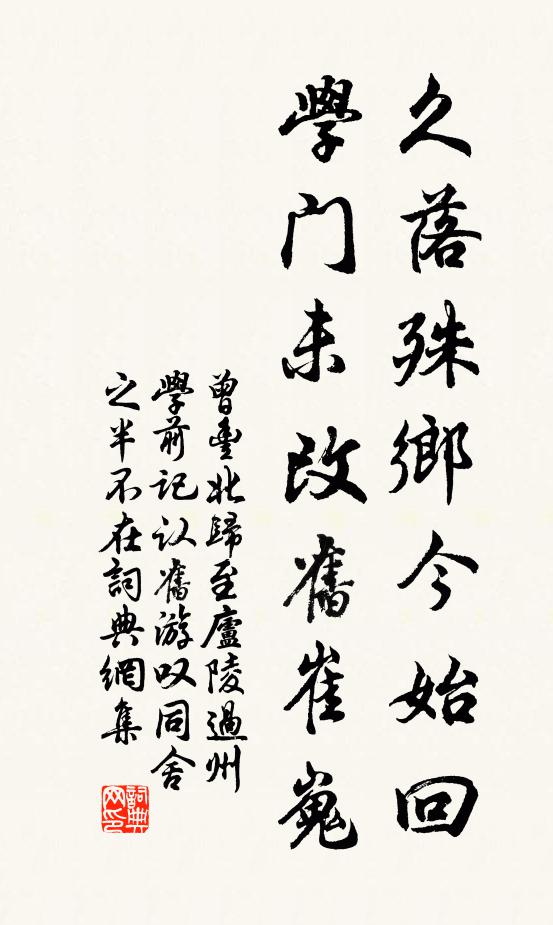 久落殊鄉今始回
學門未改舊崔嵬
曾豐北歸至廬陵過州
學前記认舊游叹同舍
之半不在詞典網集
詞典网印